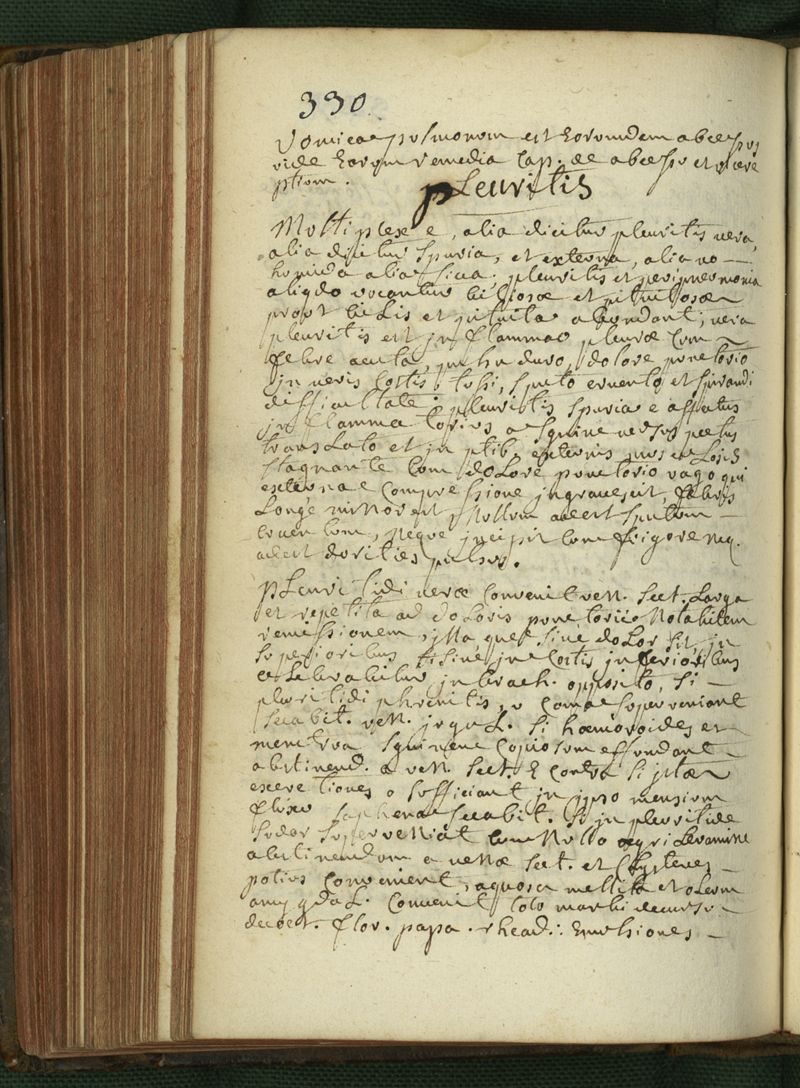 330
Vomica pulmonum est eorumdem abcessus
vide eorum remedia Cap. de abcessu et ulcere
ptium.
pleuritis
Multiplex e, alia dicitur pleuritis vera,
alia dicitur spuria, et externa, alia
humida alia sicca. pleuritis et peripneumonia
aliqdo vocantur biliosæ et pituitosæ
prout bilis et pituita abundant; vera
pleuritis est inflammao pleuræ cum
febre acuta, pulsu duro, dolore punctorio
in veris Costis, tusi, sputo cruento, et spirandi
difficultate: pleuritis spuria e afflatus
inflamma torius a sguine versus pectus
translato et in ptib. externis musculosis
stagnante cum dolore punctorio vago qui
externa e compressione ingravescit, febris
longe minor est Nullum adest sputum
cruentum, neque incipit cum frigore neq.
adest durities pulsus.
pleuritidi veræ Convenit ven. sect. Larga
et repetita ad doloris punctorii Notabilem
remissionem, illa que sine dolor sit, in
superioribus sine in Costis inferioribus
Celebrabitur in brach. opposito, si
pleuritidi phrenitis, v coma superveniant
secabit. ven. jugul. si hæmoroides et
menstrua sguinem Copiosum effundant
abstinend. a ven. sect. E Contra si ptæ
excretiones o sufficiant in ipso mensium
fluxu saphena secabit. si in pleuritide
sudor superveniat cum Nullo ægri levamine
abstinendum a venæ sect. et Clysteres
potius Convenient, aquosa mellita et oleum
amygdal. Convenit toto morbi decursu
decoct. flor. papa. rhead: Emulsiones